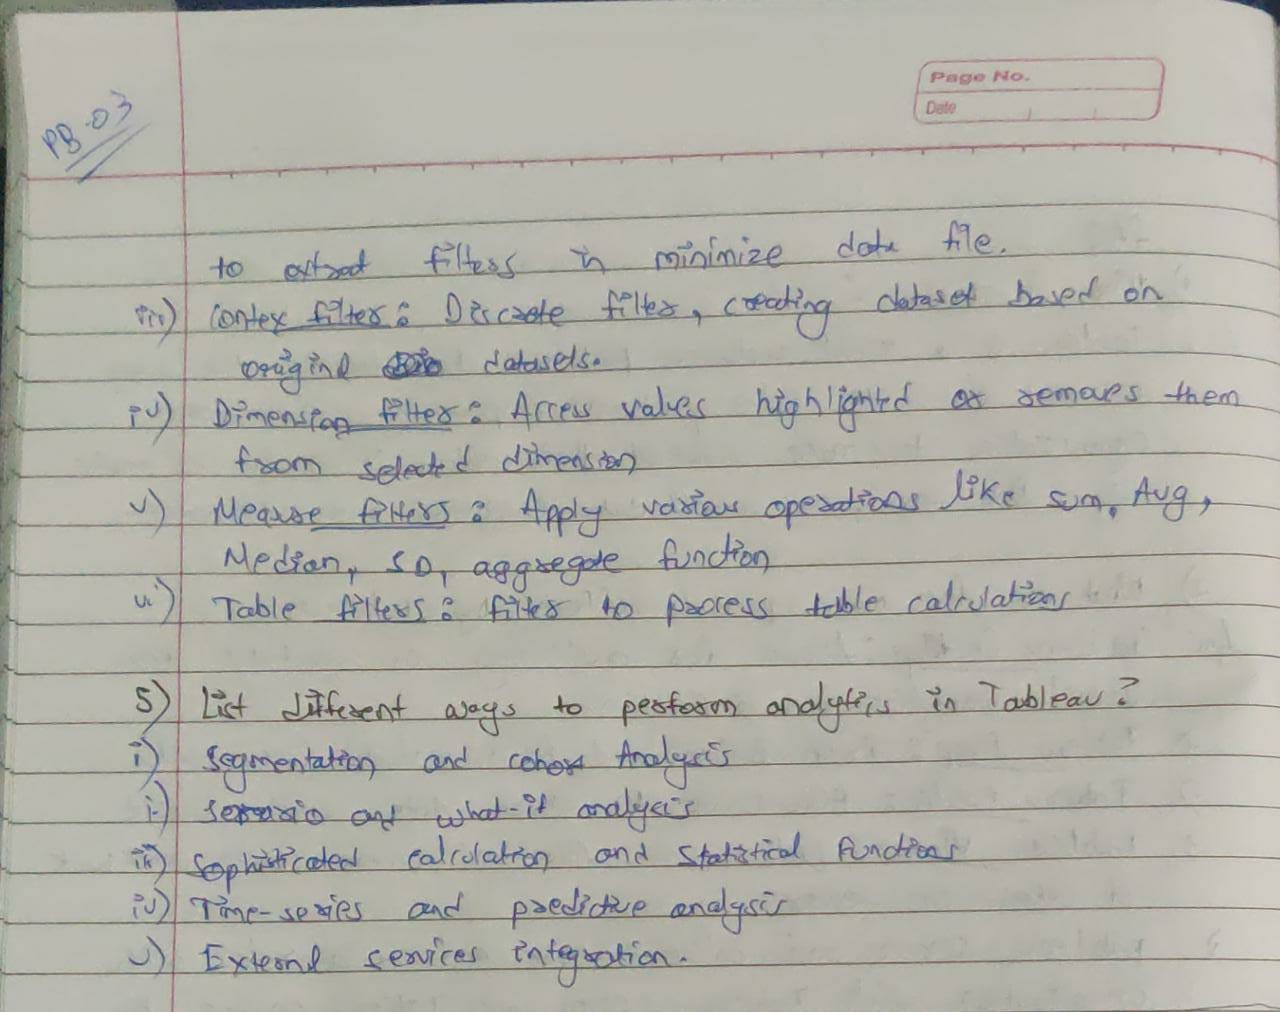 PB-03
Page No.
Date
to extract filters in minimize data file.
iii) Contex filter : Discrete filter, creating dataset based on
original datasets.
iv) Dimension filter : Access values highlighted or removes them
from selected dimension
v) Measure filters : Apply various operations like sum, Avg,
Median, SD, aggregate function
vi) Table filters : filter to process table calculations
5) List different ways to perform analytics in Tableau?
i) Segmentation and cohort Analysis
ii) Scenario and what-if analysis
iii) Sophisticated calculation and statistical functions
iv) Time-series and predictive analysis
v) External services integration.